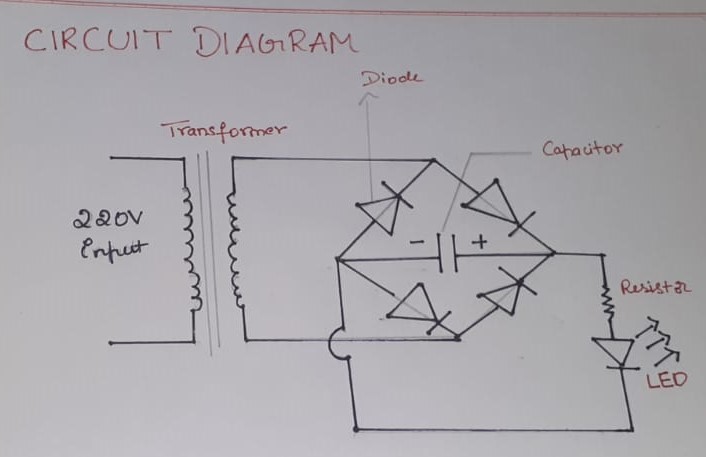 CIRCUIT DIAGRAM
Diode
Transformer
Capacitor
220V
Input
- +
Resistor
LED